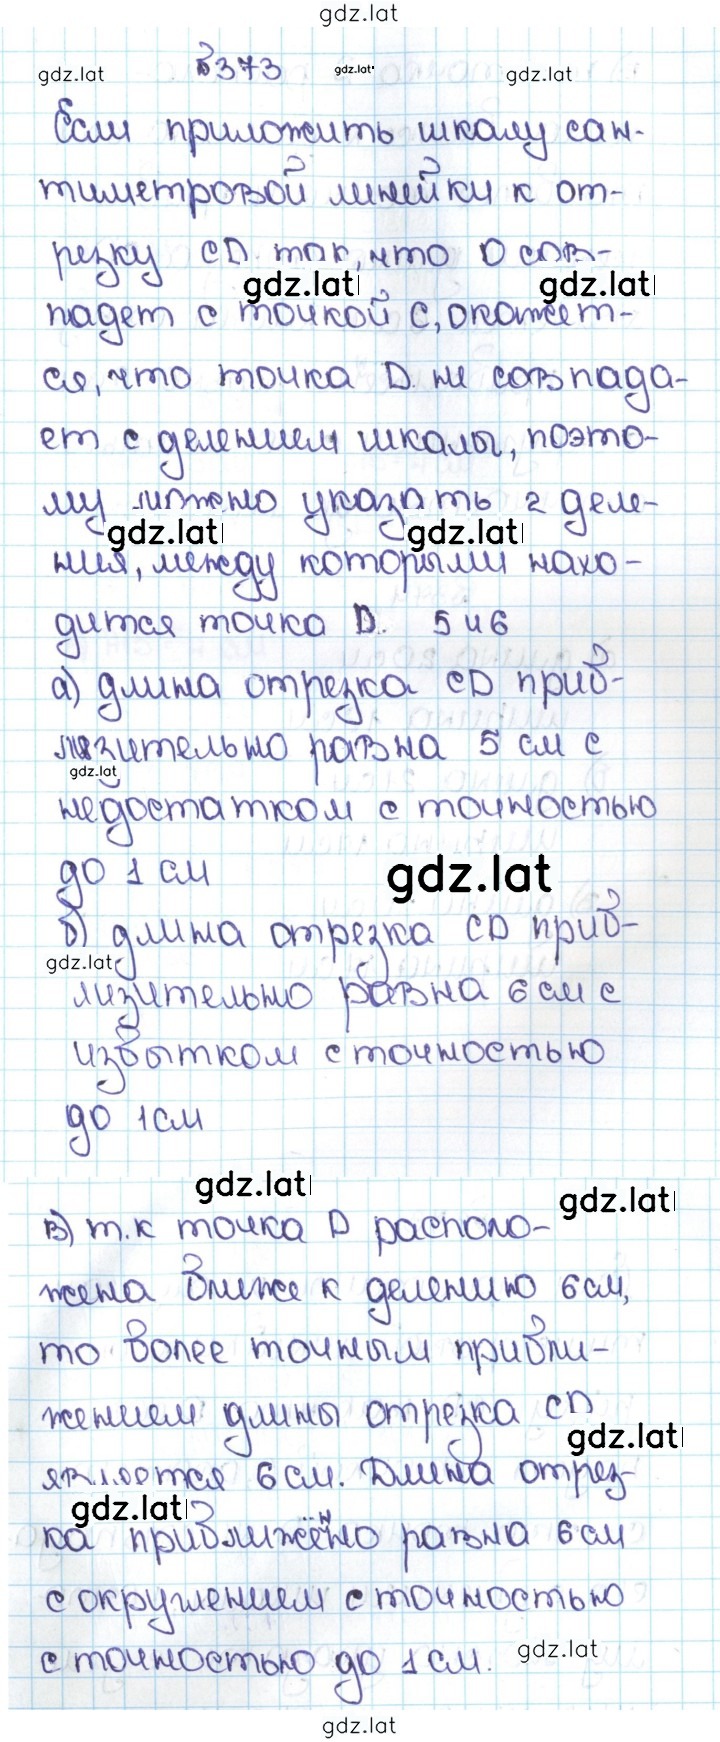 gdz.lat
№373
gdz.lat gdz.lat gdz.lat
Если приложить шкалу сан-
тиметровой линейки к от-
резку CD так, что 0 сов-
gdz.lat gdz.lat
падет с точкой C, окажет-
ся, что точка D не совпада-
ет с делением шкалы, поэто-
му можно указать 2 деле-
gdz.lat gdz.lat
ния, между которыми нахо-
дится точка D. 5 и 6
а) длина отрезка CD приб-
лизительно равна 5 см с
gdz.lat
недостатком с точностью
до 1 см
gdz.lat
б) длина отрезка CD приб-
gdz.lat
лизительно равна 6 см с
избытком с точностью
до 1 см
gdz.lat gdz.lat
в) т.к точка D располо-
жена ближе к делению 6 см,
то более точным прибли-
жением длины отрезка CD
gdz.lat
является 6 см. Длина отрез-
gdz.lat
ка приближённо равна 6 см
с округлением с точностью
с точностью до 1 см.
gdz.lat
gdz.lat